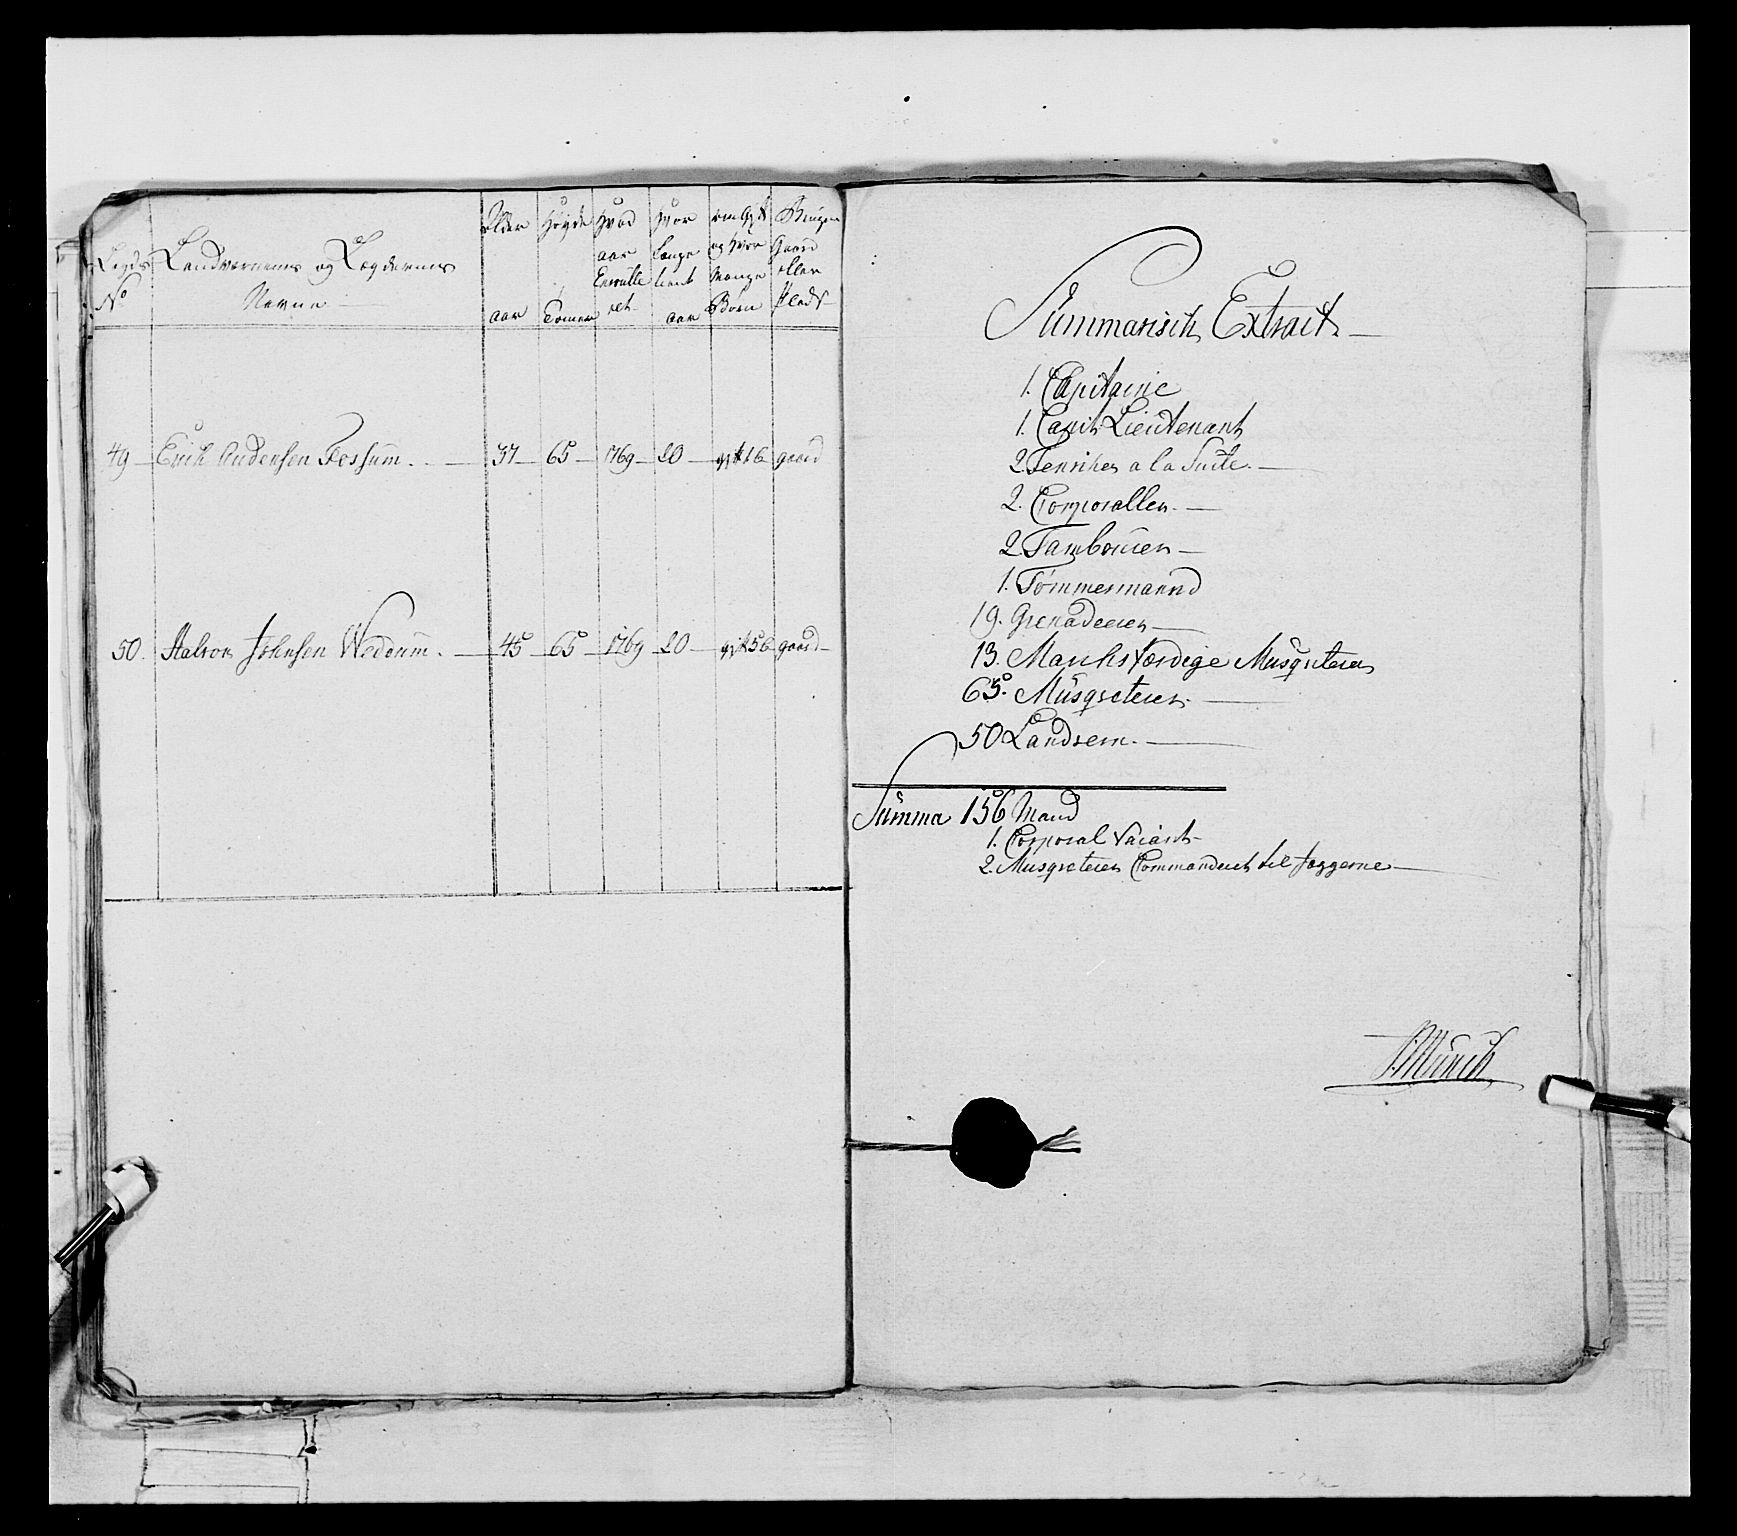 Legds No
Landværnens og Lægdernes Nevne
Alder aar
Høyde Tommer
Hvad aar Enrulleret
Hvor længe tient aar
om Gift og hvor Mange Børn
Bruger Gaard eller Plads
49 Erich Andersen Fossum. 37 65 1769 20 gift 6 gaard
50. Halvor Johnsen Wedum. 45 65 1769 20 gift 6 gaard
Summarisch Extract
1. Capitaine
1. Capit Lieutenant
2. Fenriker a la Suite.
2. Corporaller.
2. Tambourer
1. Tømmermannd
19. Grenadeerer
13. Marchsfærdige Musqueterer
65. Musqveterer.
50 Landvern.
Summa 156 Mand
1. Corporal Vacant
2. Musqveterer Commanderet til Jæggerne
Münch